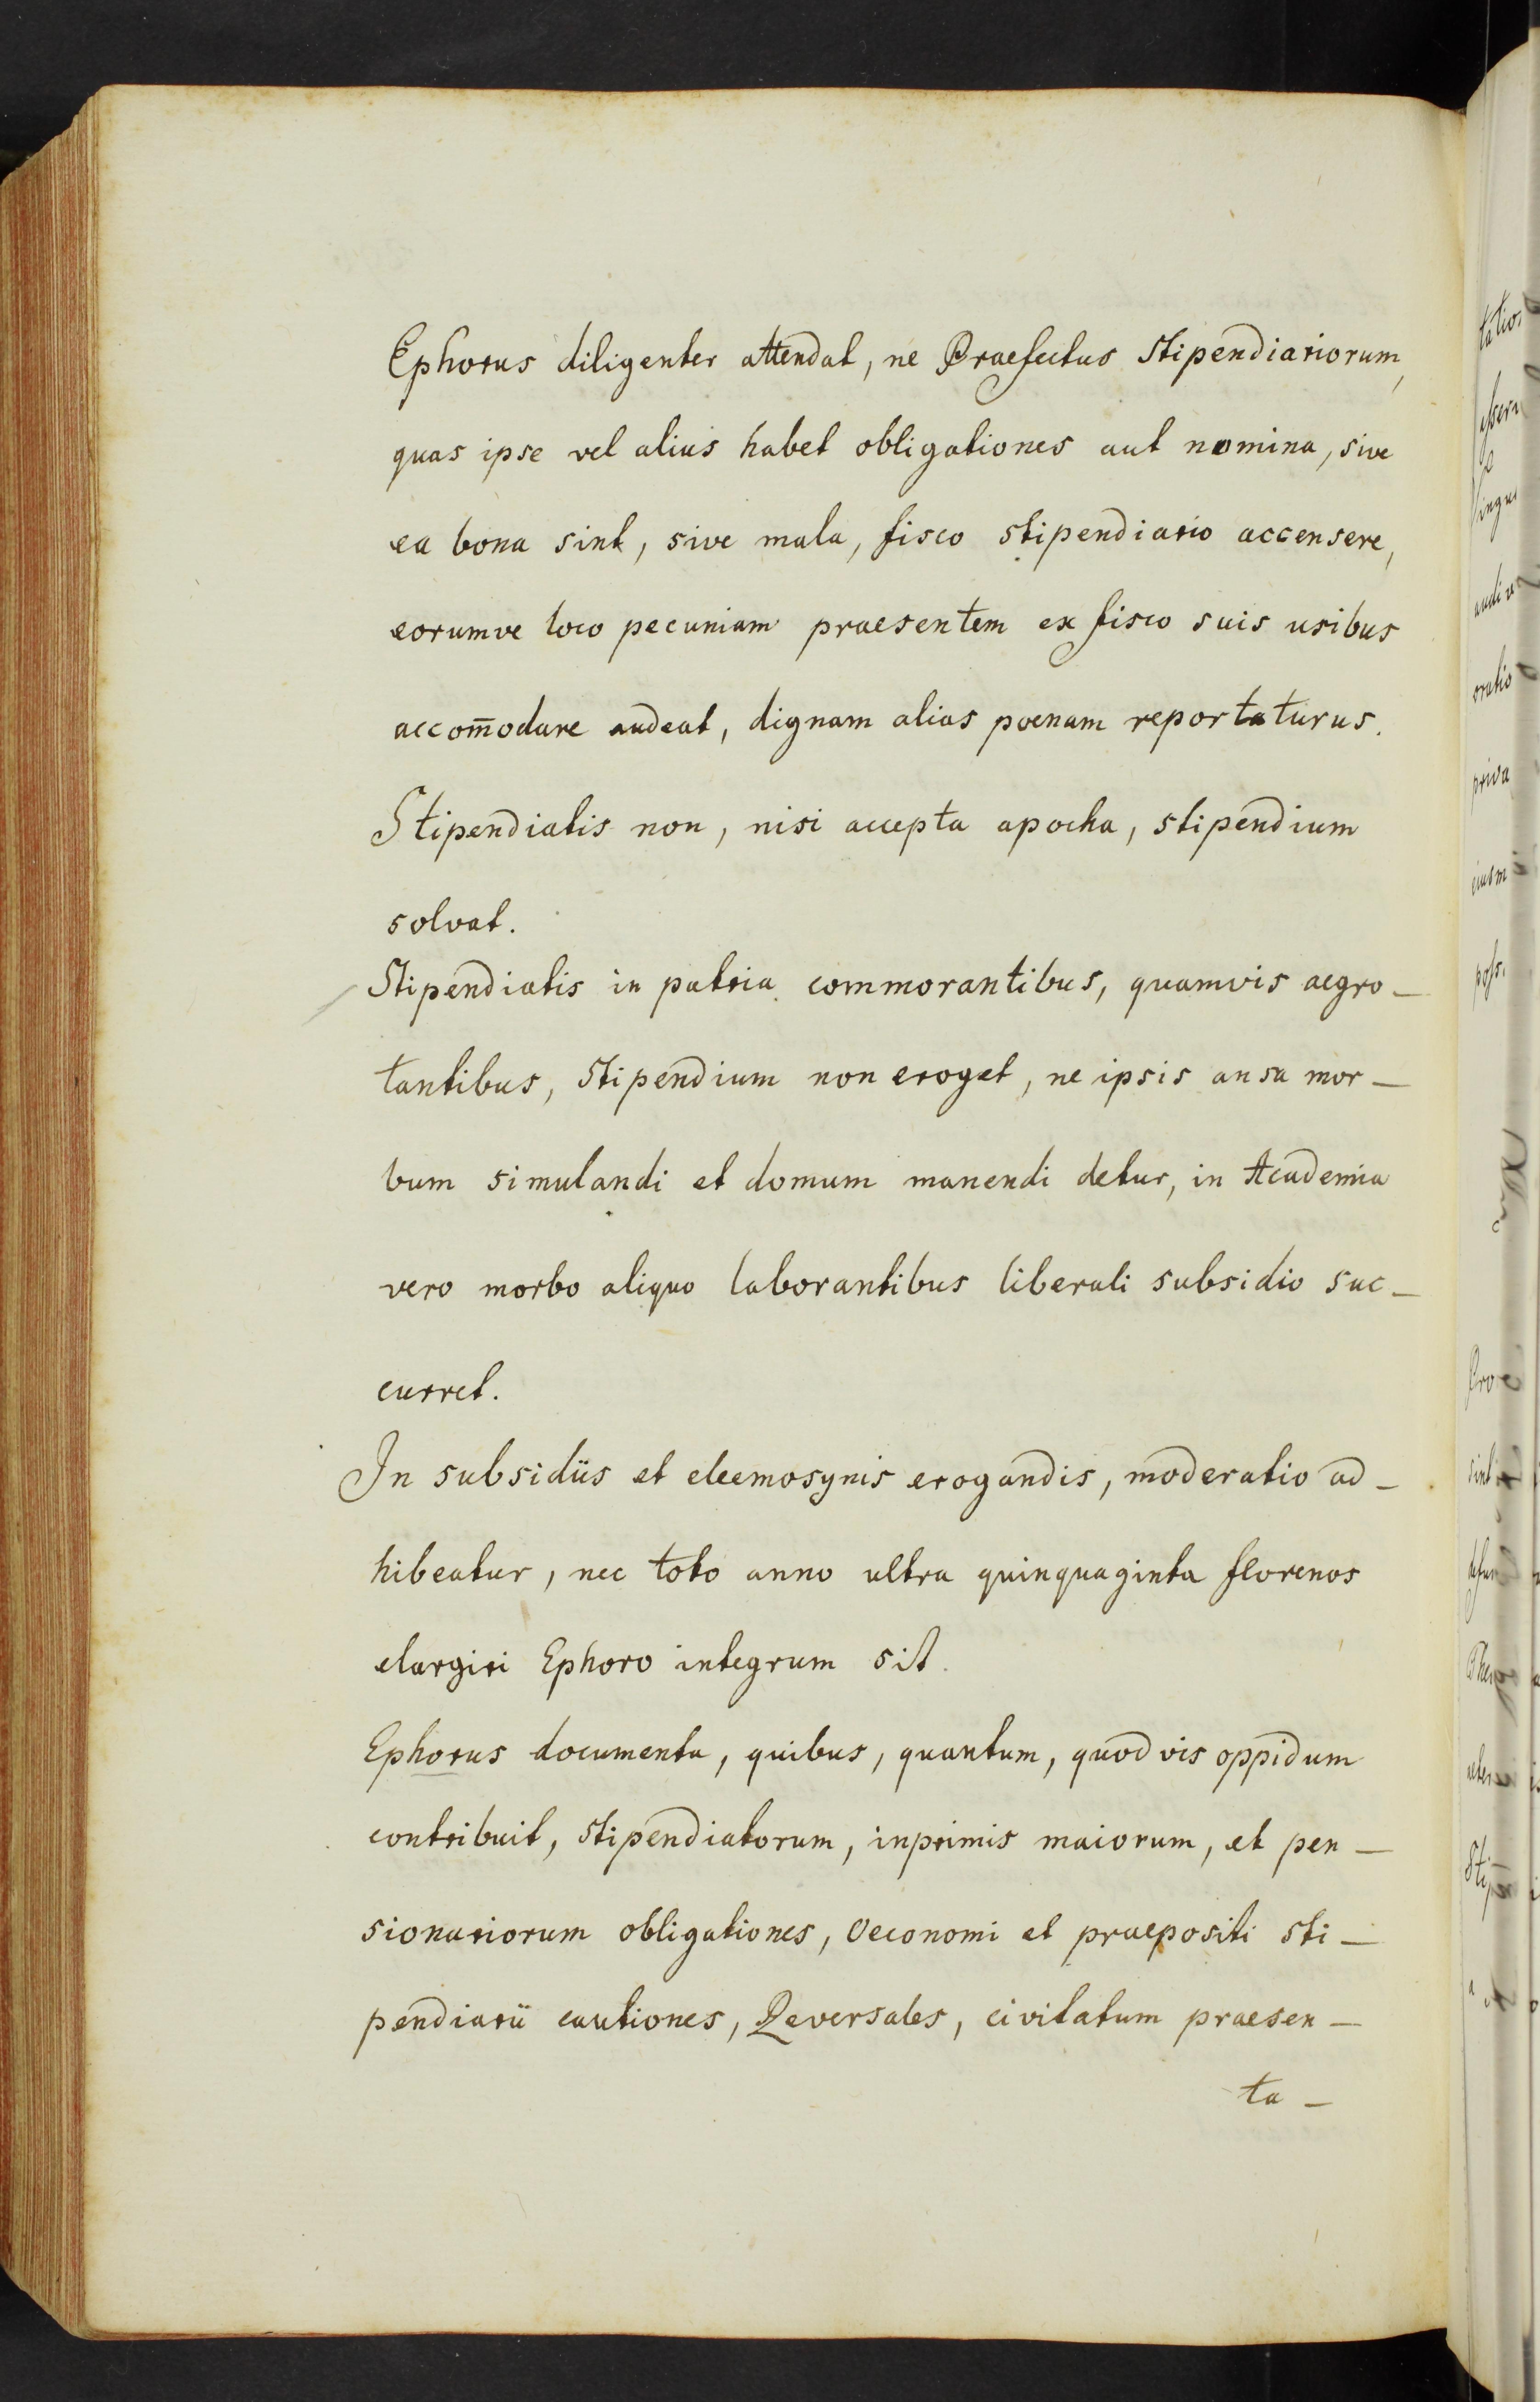 Ephorus diligenter attendat, ne Praefectus Stipendiariorum,
quas ipse vel alius habet obligationes aut nomina, sive
ea bona sint, sive mala, fisco stipendiario accensere,
eorumve loco pecuniam praesentem ex fisco suis usibus
accom̄odare audeat, dignam alias poenam reportaturus.
Stipendiatis non, nisi accepta apocha, stipendium
solvat.
Stipendiatis in patria commorantibus, quamvis aegro-
tantibus, Stipendium non eroget, ne ipsis ansa mor-
bum simulandi et domum manendi detur, in Academia
vero morbo aliquo laborantibus liberali subsidio suc-
curret.
In subsidiis et eleemosynis erogandis, moderatio ad-
hibeatur, nec toto anno ultra quinquaginta florenos
elargiri Ephoro integrum sit.
Ephorus documenta, quibus, quantum, quodvis oppidum
contribuit, Stipendiatorum, inprimis maiorum, et pen-
sionariorum obligationes, Oeconomi et praepositi sti-
pendiarii cautiones, Reversales, civitatum praesen-
ta-